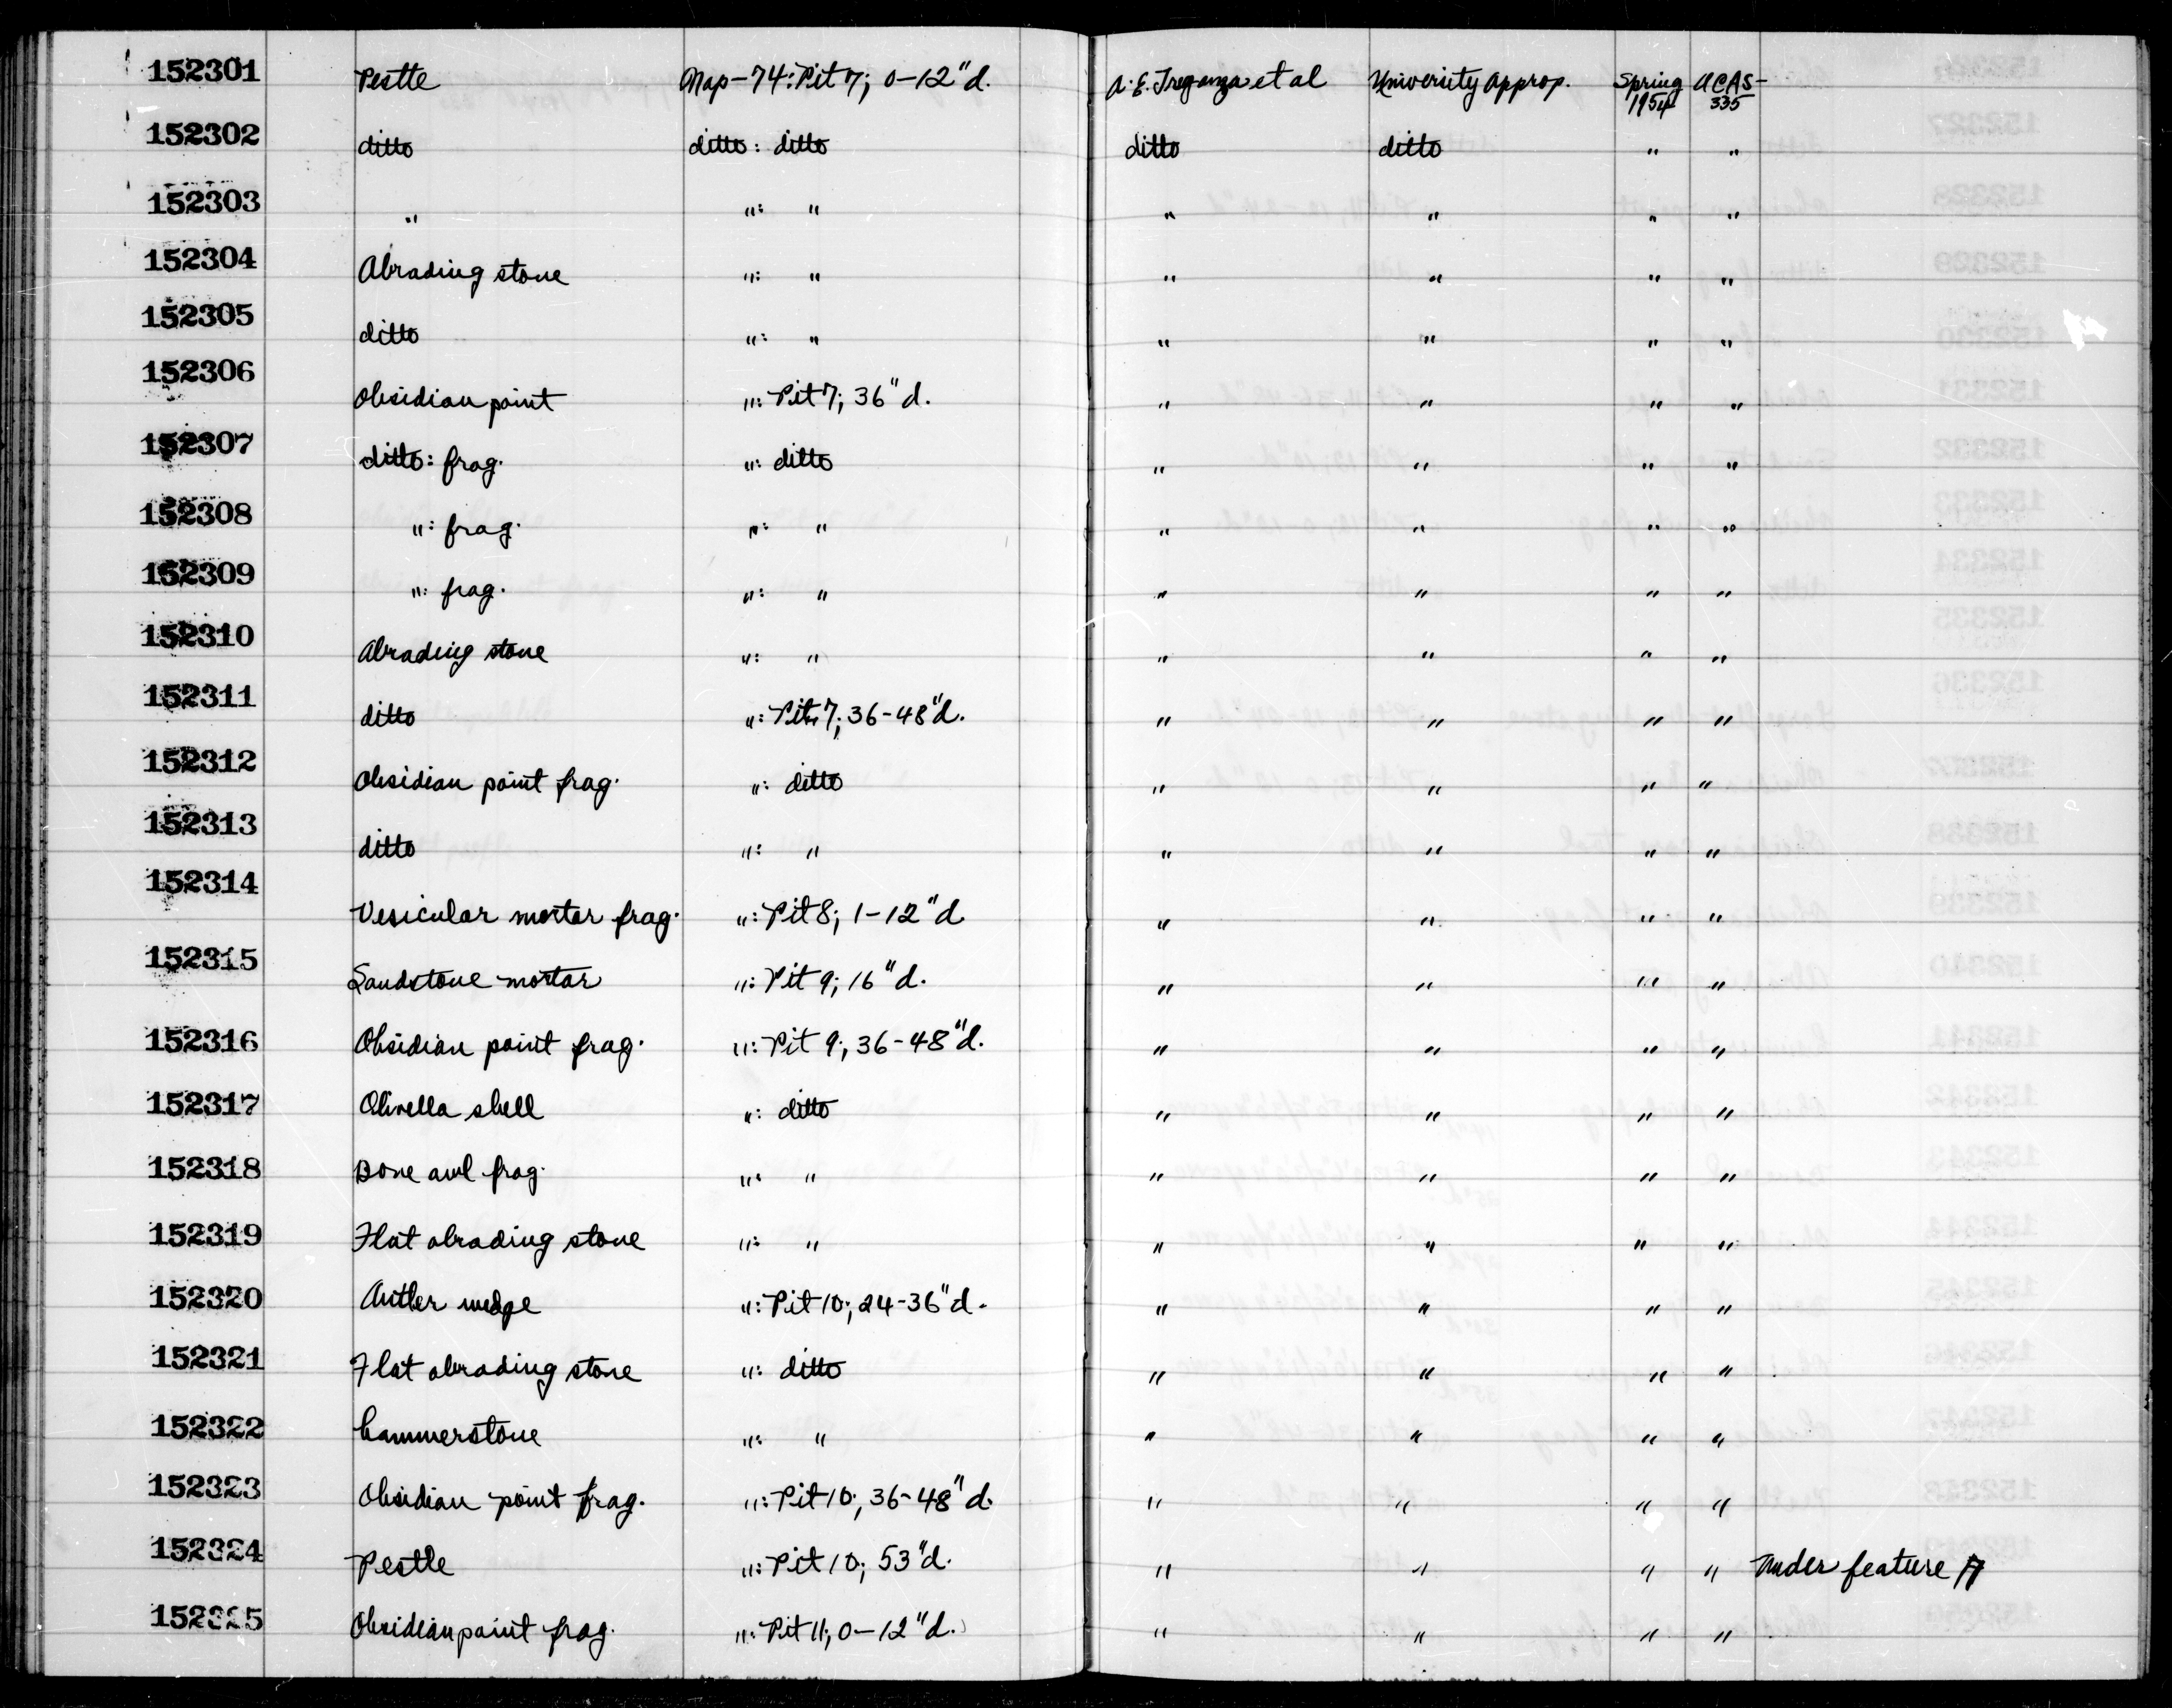 152301 Pestle Nap-74: Pit 7; 0-12"d. A.E. Treganza et al University Approp. Spring 1954 UCAS-335
152302 ditto ditto: ditto ditto ditto " "
152303 " ": " " " " "
152304 Abrading stone ": " " " " "
152305 ditto ": " " " " "
152306 Obsidian point ": Pit 7; 36"d. " " " "
152307 ditto: frag. ": ditto " " " "
152308 ": frag. ": " " " " "
152309 ": frag. ": " " " " "
152310 Abrading stone ": " " " " "
152311 ditto ": Pit 7; 36-48"d. " " " "
152312 Obsidian point frag. ": ditto " " " "
152313 ditto ": " " " " "
152314 Vesicular mortar frag. ": Pit 8; 1-12"d " " " "
152315 Sandstone mortar ": Pit 9; 16"d. " " " "
152316 Obsidian point frag. ": Pit 9; 36-48"d. " " " "
152317 Olivella shell ": ditto " " " "
152318 Bone awl frag. ": " " " " "
152319 Flat abrading stone ": " " " " "
152320 Antler wedge ": Pit 10; 24-36"d. " " " "
152321 Flat abrading stone ": ditto " " " "
152322 hammerstone ": " " " " "
152323 Obsidian point frag. ": Pit 10; 36-48"d. " " " "
152324 Pestle ": Pit 10; 53"d. " " " " Under feature
152325 Obsidian point frag. ": Pit 11; 0-12"d. " " " "